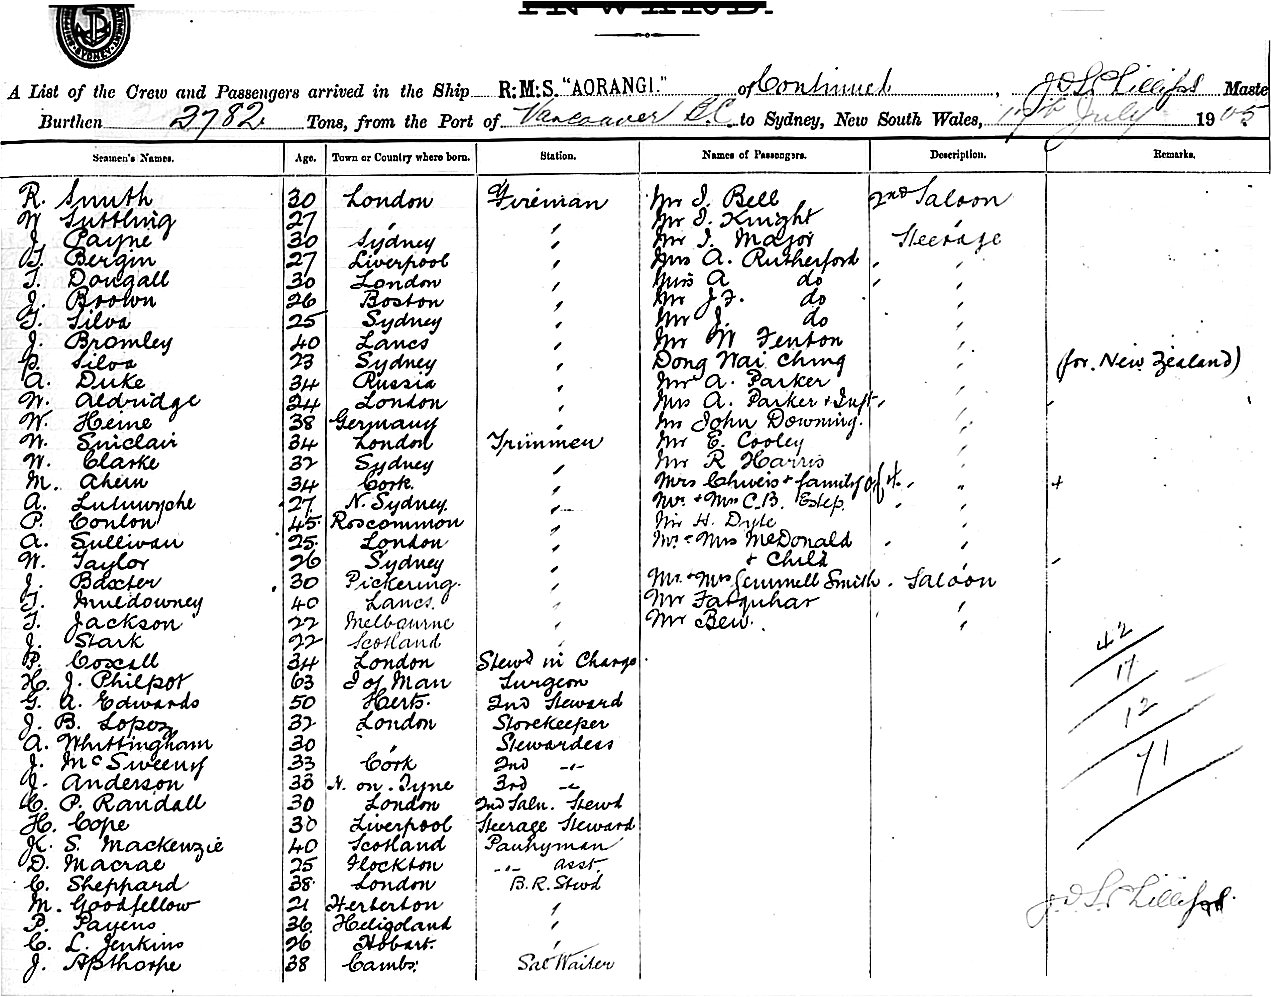 INWARD.
A List of the Crew and Passengers arrived in the Ship R:M:S. "AORANGI." of Continued, J D S Phillips Maste
Burthen 2782 Tons, from the Port of Vancouver B.C. to Sydney, New South Wales, July 1905
Seamen's Names. Age. Town or Country where born. Station. Names of Passengers. Description. Remarks.
R. Smith 30 London Fireman Mr J. Bell 2nd Saloon
W Suttling 27 " " Mr J. Knight "
J. Payne 30 Sydney " Mr J. Major Steerage
T. Bergin 27 Liverpool " Mrs A. Rutherford "
T. Dougall 30 London " Miss A do "
J. Brown 26 Boston " Mr J.F. do "
T. Silva 25 Sydney " Mr J. do "
J. Bromley 40 Lancs " Mr W Fenton "
P. Silva 23 Sydney " Dong Wai Ching " (for New Zealand)
A. Duke 34 Russia " Mr A. Parker "
W. Aldridge 24 London " Mrs A. Parker + Inft "
W. Heine 38 Germany " Mr John Downing "
W. Sinclair 34 London Trimmer Mr E. Cooley "
W. Clarke 32 Sydney " Mr R Harris "
M. Ahern 34 Cork " Mrs + family of 4. " +
A. 27 N. Sydney " Mr + Mrs C.B. Estep "
P. Conlon 45 Roscommon " Mr H. "
A. Sullivan 25 London " Mr + Mrs McDonald "
W. Taylor 26 Sydney " + Child "
J. Baxter 30 Pickering " Mr + Mrs Gemmell Smith Saloon
T. Muldowney 40 Lancs. " Mr Farquhar "
T. Jackson 22 Melbourne " Mr Bew. "
J. Stark 22 Scotland " 42
P. Coxall 34 London Stewd in Charge
H. J. Philpot 63 I of Man Surgeon 17
G. A. Edwards 50 Herts. 2nd Steward
J. B. Lopez 32 London Storekeeper 12
A. Whittingham 30 " Stewardess
J. McSweeny 33 Cork 2nd -"-
J. Anderson 33 N. on. Tyne 3rd -"- 71
C. P. Randall 30 London 2nd Saln. Stewd
H. Cope 30 Liverpool Steerage Steward
K. S. Mackenzie 40 Scotland Pantryman
D. Macrae 25 Flockton -"- asst.
C. Sheppard 38 London B.R. Stwd
M. Goodfellow 21 Herberton " J D S Phillips
P. Payens 36 Heligoland "
C. L. Jenkins 26 Hobart. "
J. Apthorpe 38 Cambs. Sal Waiter